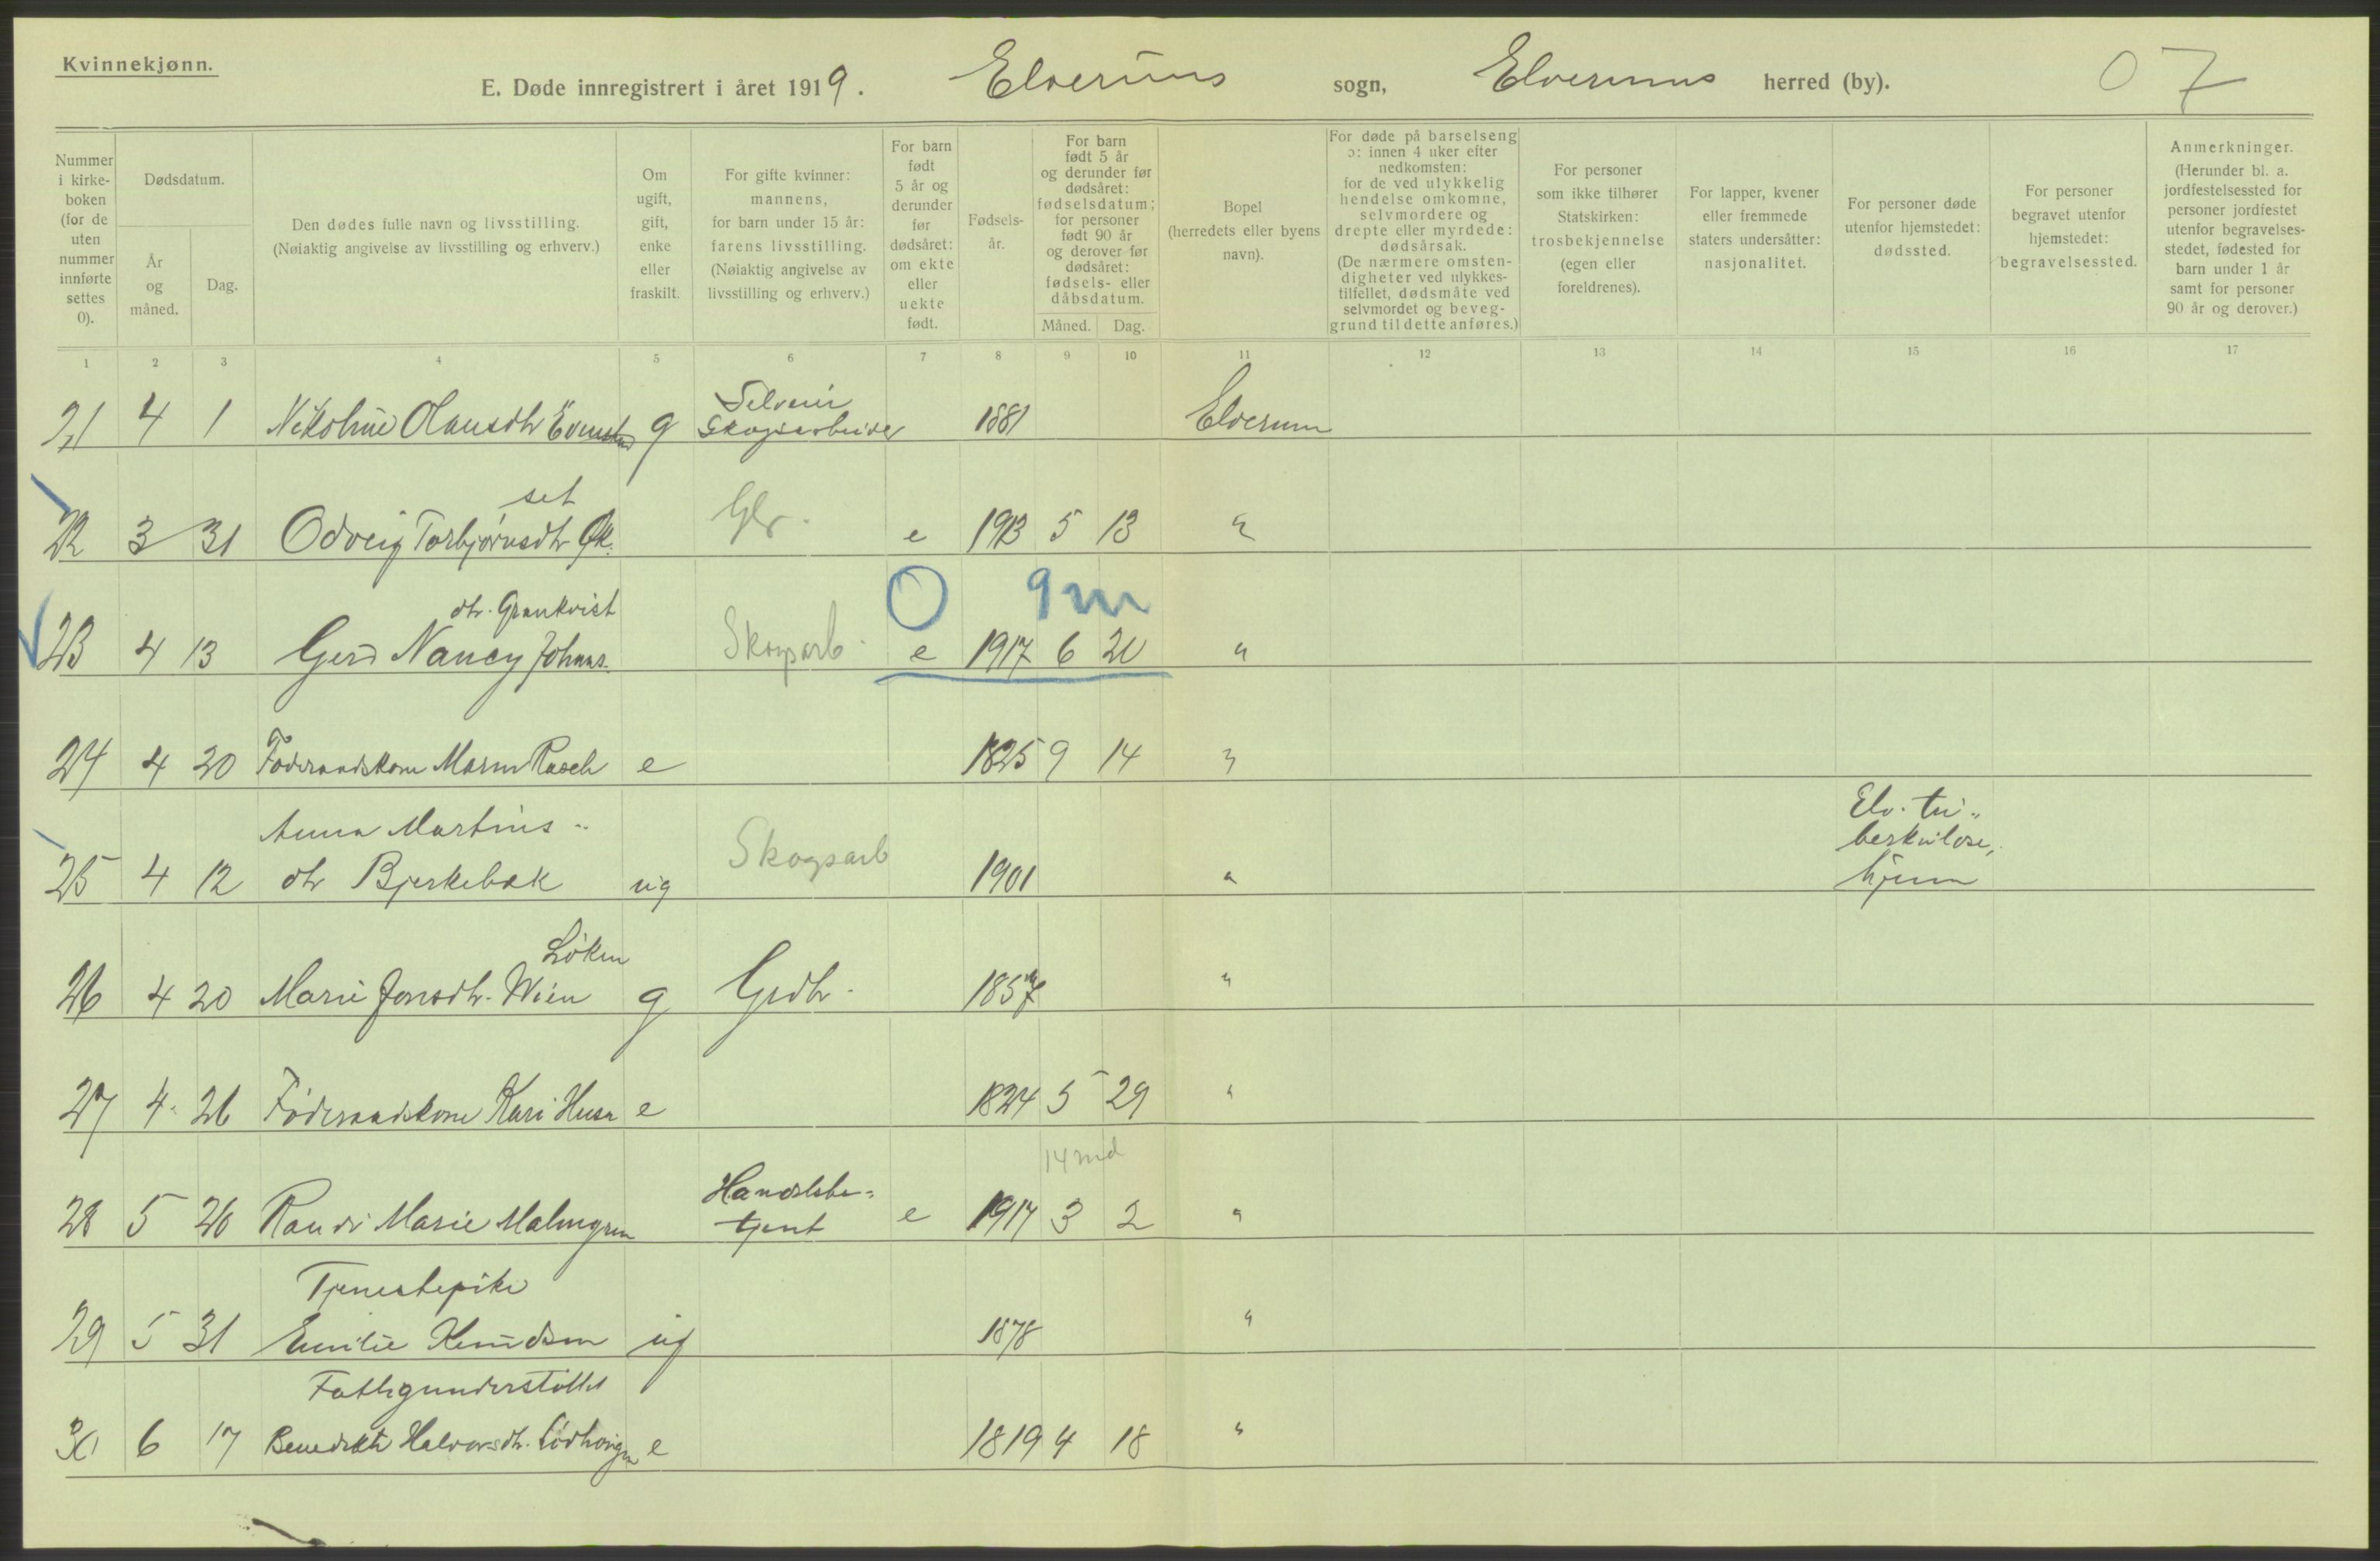 Kvinnekjønn.
E. Døde innregistrert i året 1919. Elverums sogn, Elverums herred (by). 07
Nummer i kirke- boken (for de uten nummer innførte settes 0).
Dødsdatum.
År og måned.
Dag.
Den dødes fulle navn og livsstilling.
(Nøiaktig angivelse av livsstilling og erhverv.)
Om ugift, gift, enke eller fraskilt.
For gifte kvinner: mannens, for barn under 15 år: farens livsstilling. (Nøiaktig angivelse av livsstilling og erhverv.)
For barn født 5 år og derunder før dødsåret: om ekte eller uekte født.
Fødsels- år.
For barn født 5 år og derunder før dødsåret: fødselsdatum; for personer født 90 år og derover før dødsåret: fødsels- eller dåbsdatum.
Måned. Dag.
Bopel (herredets eller byens navn).
For døde på barselseng ɔ: innen 4 uker efter nedkomsten: for de ved ulykkelig hendelse omkomne, selvmordere og drepte eller myrdede: dødsårsak. (De nærmere omsten- digheter ved ulykkes- tilfellet, dødsmåte ved selvmordet og beveg- grund til dette anføres.)
For personer som ikke tilhører Statskirken: trosbekjennelse (egen eller foreldrenes).
For lapper, kvener eller fremmede staters undersåtter: nasjonalitet.
For personer døde utenfor hjemstedet: dødssted.
For personer begravet utenfor hjemstedet: begravelsessted.
Anmerkninger. (Herunder bl. a. jordfestelsessted for personer jordfestet utenfor begravelses- stedet, fødested for barn under 1 år samt for personer 90 år og derover.)
1 2 3 4 5 6 7 8 9 10 11 12 13 14 15 16 17
Selveier
21 4 1 Nikoline Olausdtr Evenstad g Skogsarbeider 1881 Elverum
set
22 3 31 Odveig Torbjørnsdtr Øk. Gbr. e 1913 5 13 "
dtr. Grankvist 0 9 m
23 4 13 Gerd Nancy Johans. Skogsarb. e 1917 6 20 "
24 4 20 Føderaadskone Maren Rasch e 1825 9 14 "
Anna Martins- Elv. tu-
berkulose,
25 4 12 dtr Bjerkebæk ug Skogsarb 1901 " hjem
Løken
26 4 20 Marie Jonsdtr. Wien g Grdbr. 1857 "
27 4 26 Føderaadskone Kari Husa e 1824 5 29 "
14 md
Handelsbe-
28 5 26 Randi Marie Malmgren tjent e 1917 3 2 "
Tjenestepike
29 5 31 Emilie Knudsen ug 1878 "
Fattigunderstøttet
30 6 17 Benedikte Halvorsdtr. e 1819 4 18 "